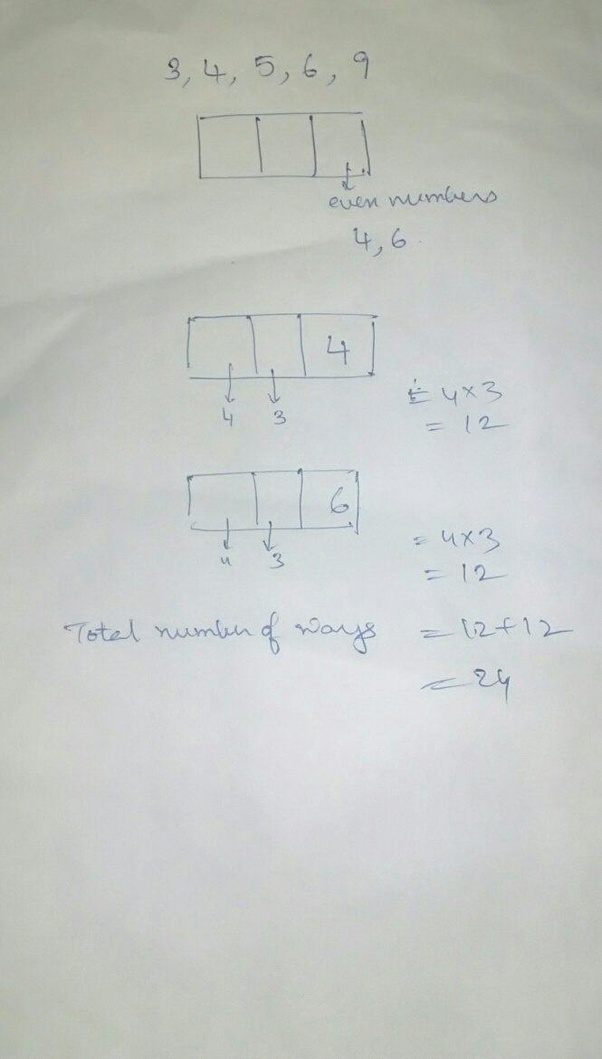 3, 4, 5, 6, 9
even numbers
4, 6
4
4 3
= 4×3
= 12
6
4 3
= 4×3
= 12
Total number of ways = 12+12
= 24